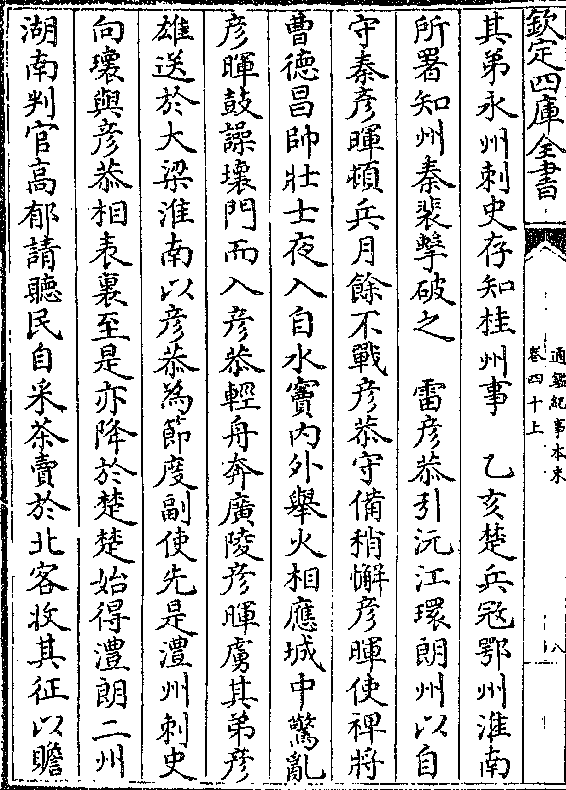 欽定四庫全書
通鑑紀事本末
卷四十上
八
其弟永州刺史存知桂州事　乙亥楚兵冦鄂州淮南
所署知州秦裴擊破之　雷彦恭引沅江環朗州以自
守秦彦暉頓兵月餘不戰彦恭守備稍懈彦暉使禆將
曹德昌帥壯士夜入自水竇内外舉火相應城中驚亂
彦暉鼓譟壞門而入彦恭輕舟奔廣陵彦暉虜其弟彦
雄送於大梁淮南以彦恭為節度副使先是澧州刺史
向瓌與彦恭相表裏至是亦降於楚楚始得澧朗二州
湖南判官髙郁請聽民自采茶賣於北客收其征以贍